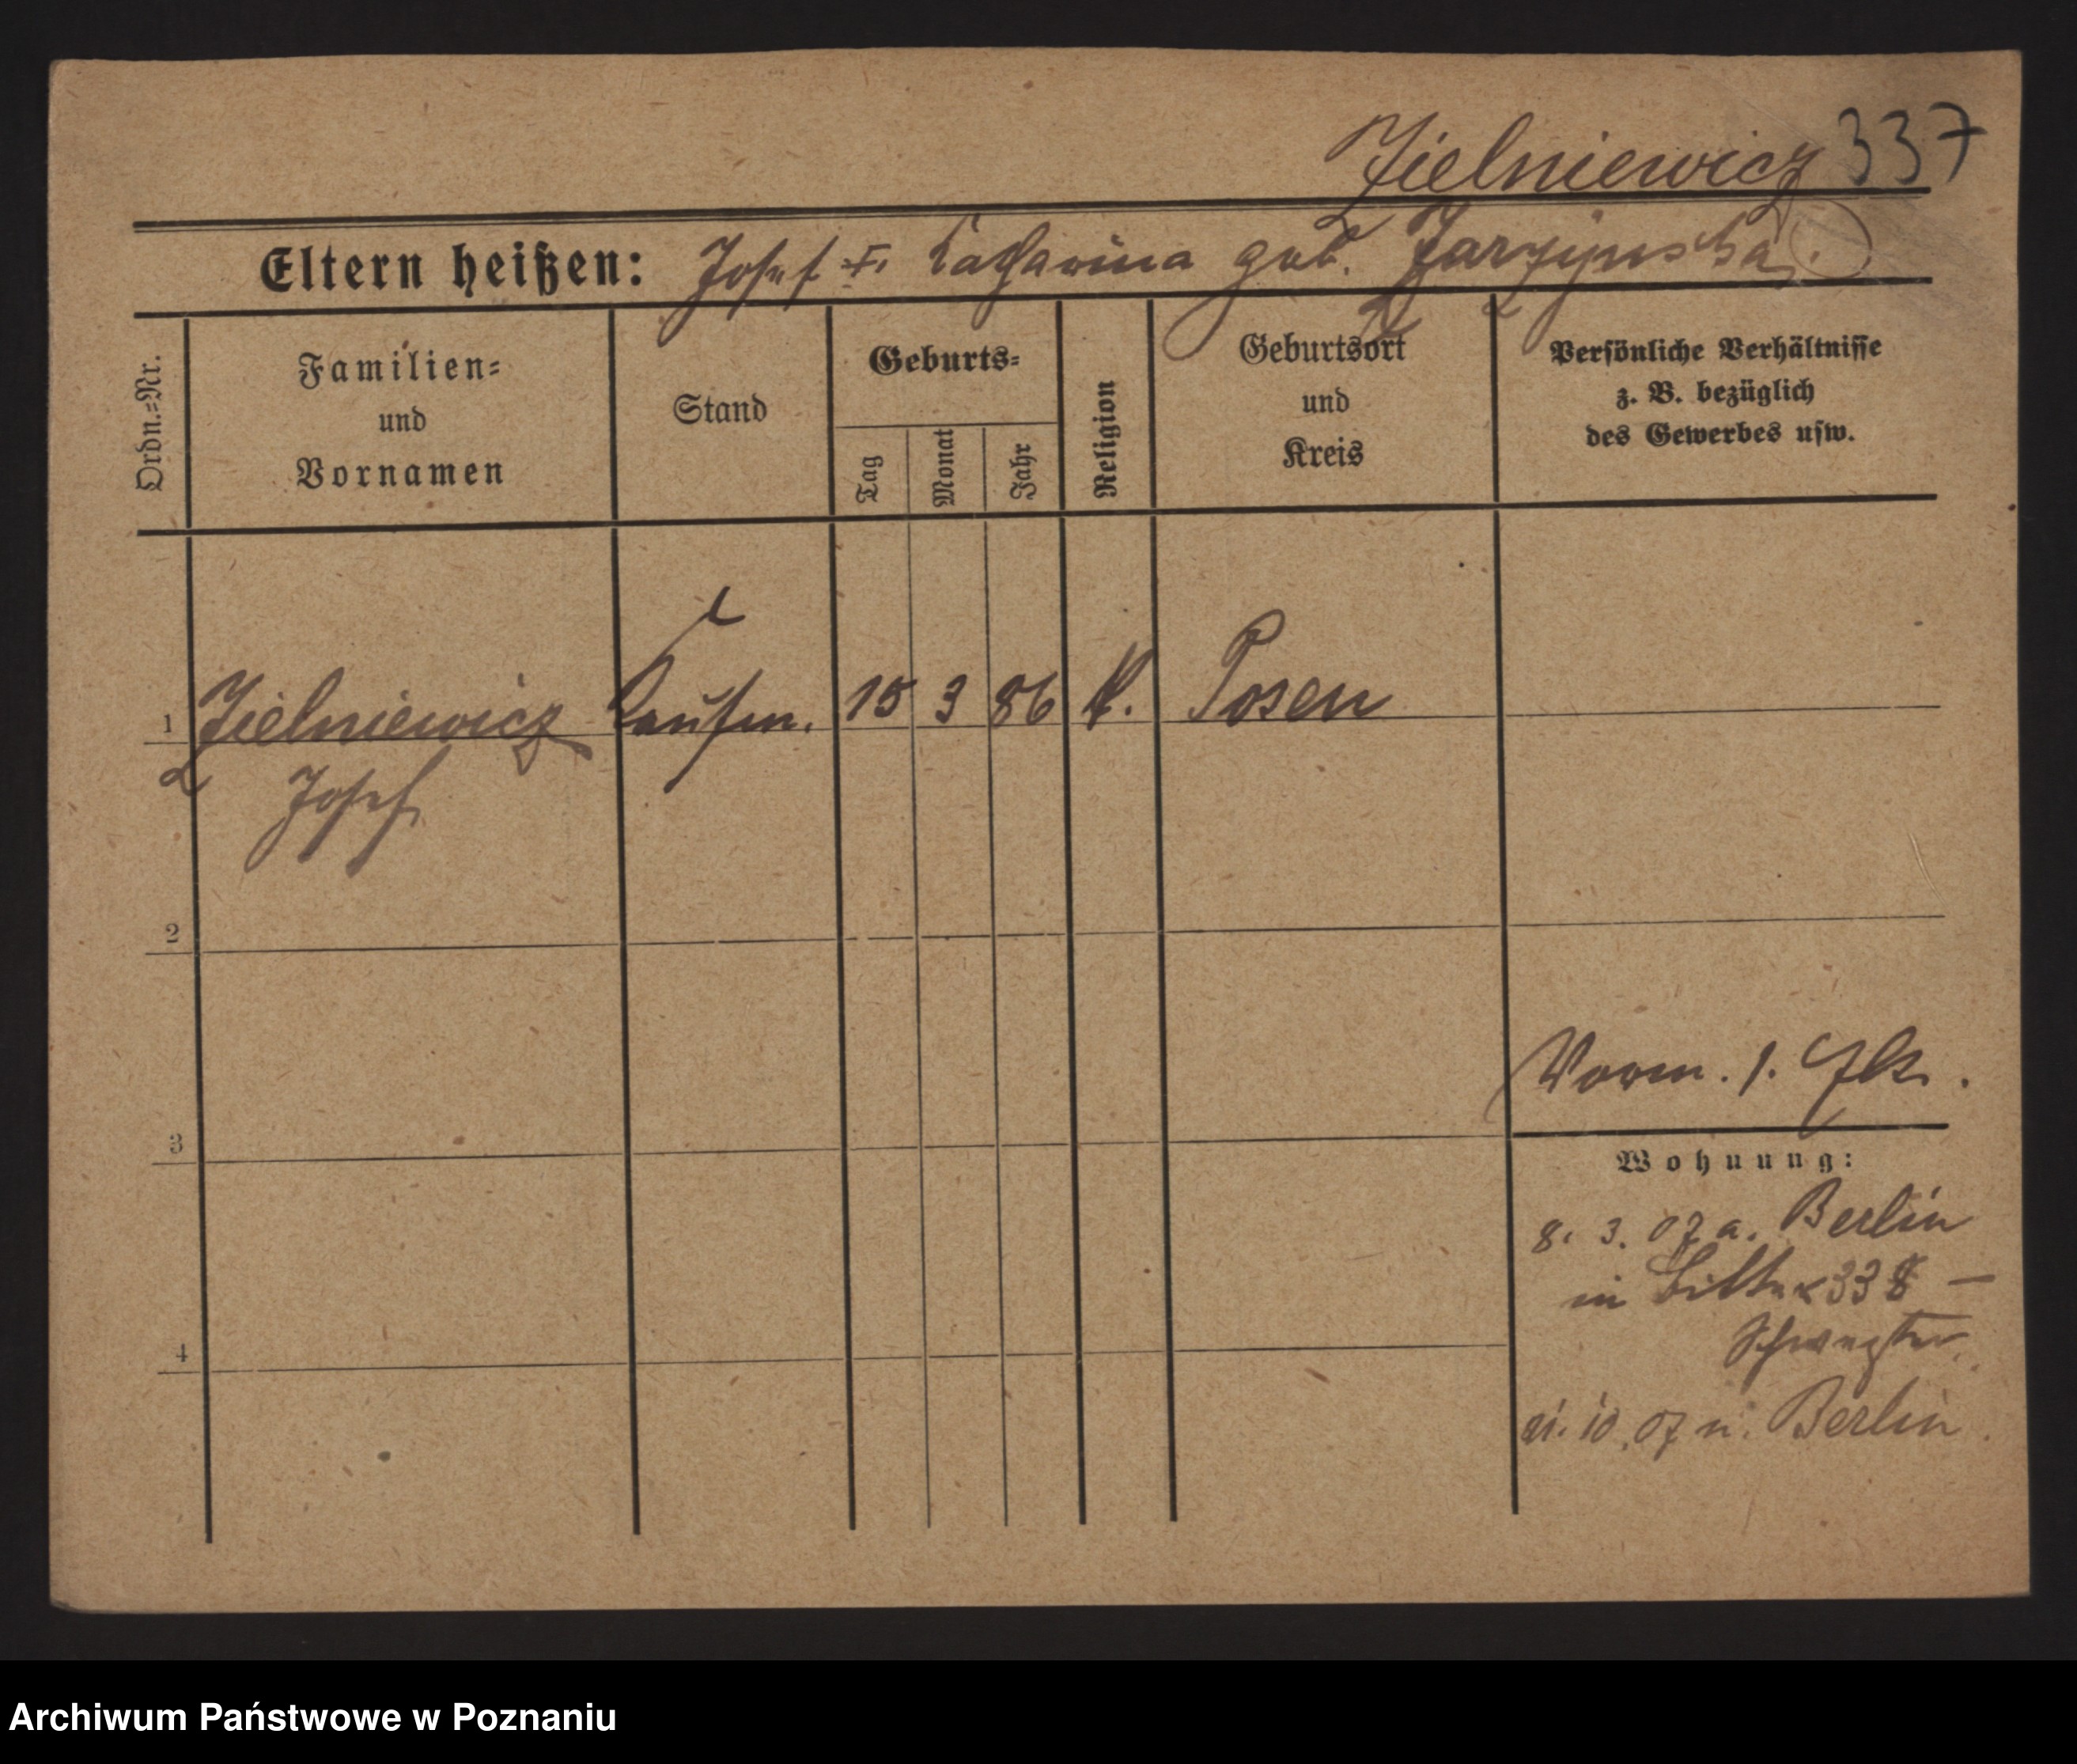 Zielniewicz 337
Eltern heißen: Josef u. Catharina geb. Zarzynska.
Ordn.=Nr.
Familien=
und
Vornamen
Stand
Geburts=
Tag
Monat
Jahr
Religion
Geburtsort
und
Kreis
Persönliche Verhältnisse
z. B. bezüglich
des Gewerbes usw.
1 Zielniewicz Kaufm. 15 3 86 k. Posen
Josef
2
3
4
Vorm. 1.
Wohnung:
8. 3. 07 a. Berlin
in 33
21. 10. 07 n. Berlin.
Archiwum Państwowe w Poznaniu